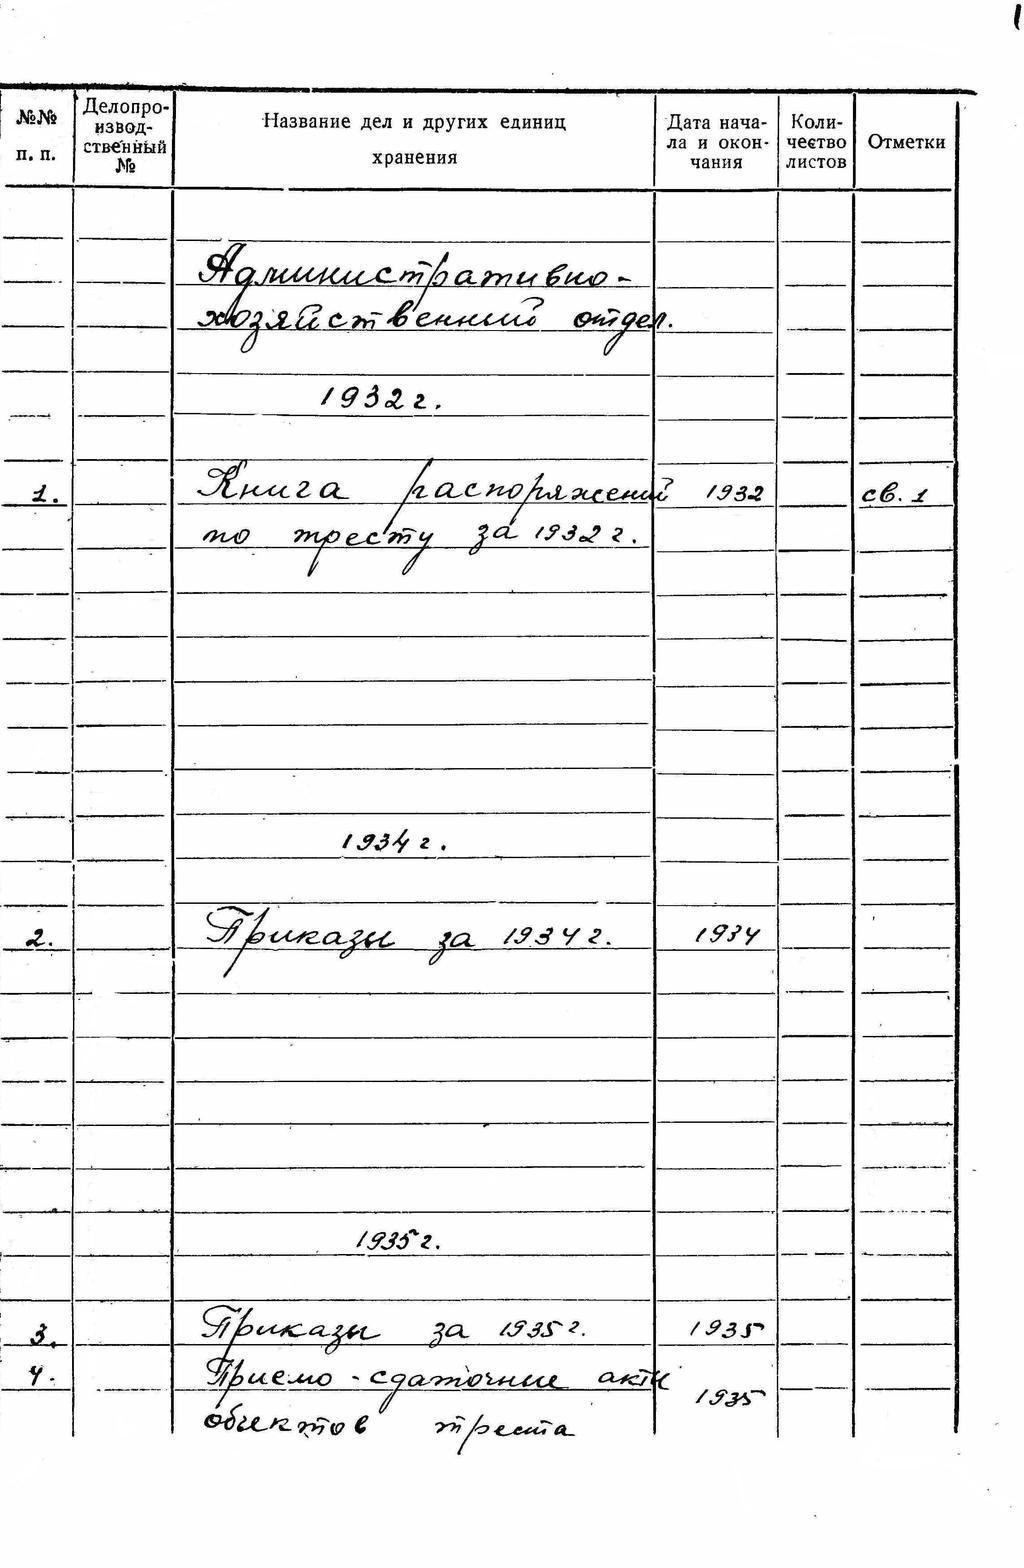 1
№№ п. п.
Делопро-
извод-
ственный
№
Название дел и других единиц
хранения
Дата нача-
ла и окон-
чания
Коли-
чество
листов
Отметки
Административно-
хозяйственный отдел.
1932 г.
1. Книга распоряжений 1932 св. 1
по тресту за 1932 г.
1934 г.
2. Приказы за 1934 г. 1934
1935 г.
3. Приказы за 1935 г. 1935
4. Приемо-сдаточные акты 1935
объектов треста